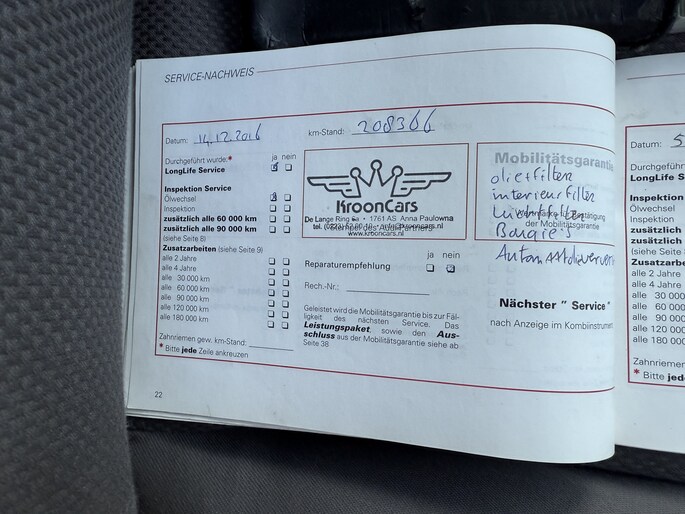 SERVICE-NACHWEIS
Datum: 14.12.2016
km-Stand: 208366
Durchgeführt wurde:* ja nein
LongLife Service
Inspektion Service
Ölwechsel
Inspektion
zusätzlich alle 60 000 km
zusätzlich alle 90 000 km
(siehe Seite 8)
Zusatzarbeiten (siehe Seite 9)
alle 2 Jahre
alle 4 Jahre
alle 30 000 km
alle 60 000 km
alle 90 000 km
alle 120 000 km
alle 180 000 km
Zahnriemen gew. km-Stand:
* Bitte jede Zeile ankreuzen
KroonCars
De Lange Ring 6a • 1761 AS Anna Paulowna
www.krooncars.nl
ja nein
Reparaturempfehlung
Rech.-Nr.:
Geleistet wird die Mobilitätsgarantie bis zur Fäl-
ligkeit des nächsten Service. Das
Leistungspaket, sowie den Aus-
schluss aus der Mobilitätsgarantie siehe ab
Seite 38
Mobilitätsgarantie
interieurfilter
der Mobilitätsgarantie
Nächster " Service "
nach Anzeige im Kombiinstrumen
22
Datum: 5
Durchgeführ
LongLife S
Inspektion
Ölwechsel
Inspektion
zusätzlich
zusätzlich
(siehe Seite
Zusatzarbe
alle 2 Jahre
alle 4 Jahre
alle 30 000
alle 60 000
alle 90 000
alle 120 000
alle 180 000
Zahnriemen
* Bitte jed